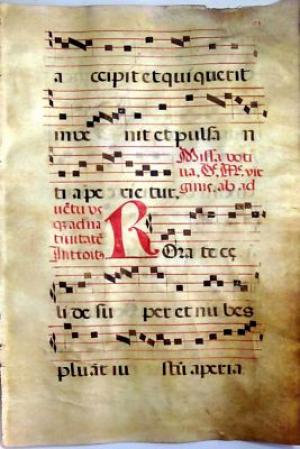 a ccipit et qui querit
inve nit et pulsan
ti ape rie tur. Missa voti
va. S. M. vir
ginis, ab ad
vētu vs
q ad na
tivitatē
Introit9
Rora te cę
li de su per et nubes
pluāt iu stū aperia